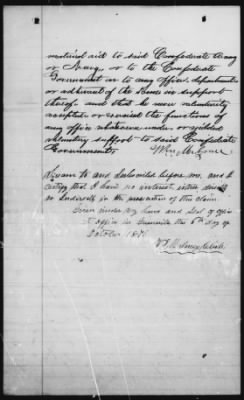 material aid to said Confederate Army
or Navy or to the Confederate
Government or to any officer, department
or adherent of the same in support
thereof and that he never voluntarily
accepted or exercised the functions of
any office whatsoever under or yielded
voluntary support to said Confederate
Government.
Sworn to and subscribed before me and I
certify that I have no interest either direct
or indirectly in the prosecution of this claim.
Given under my hand and seal of office
at office in Greenville the 6th day of
October 1876
Clerk